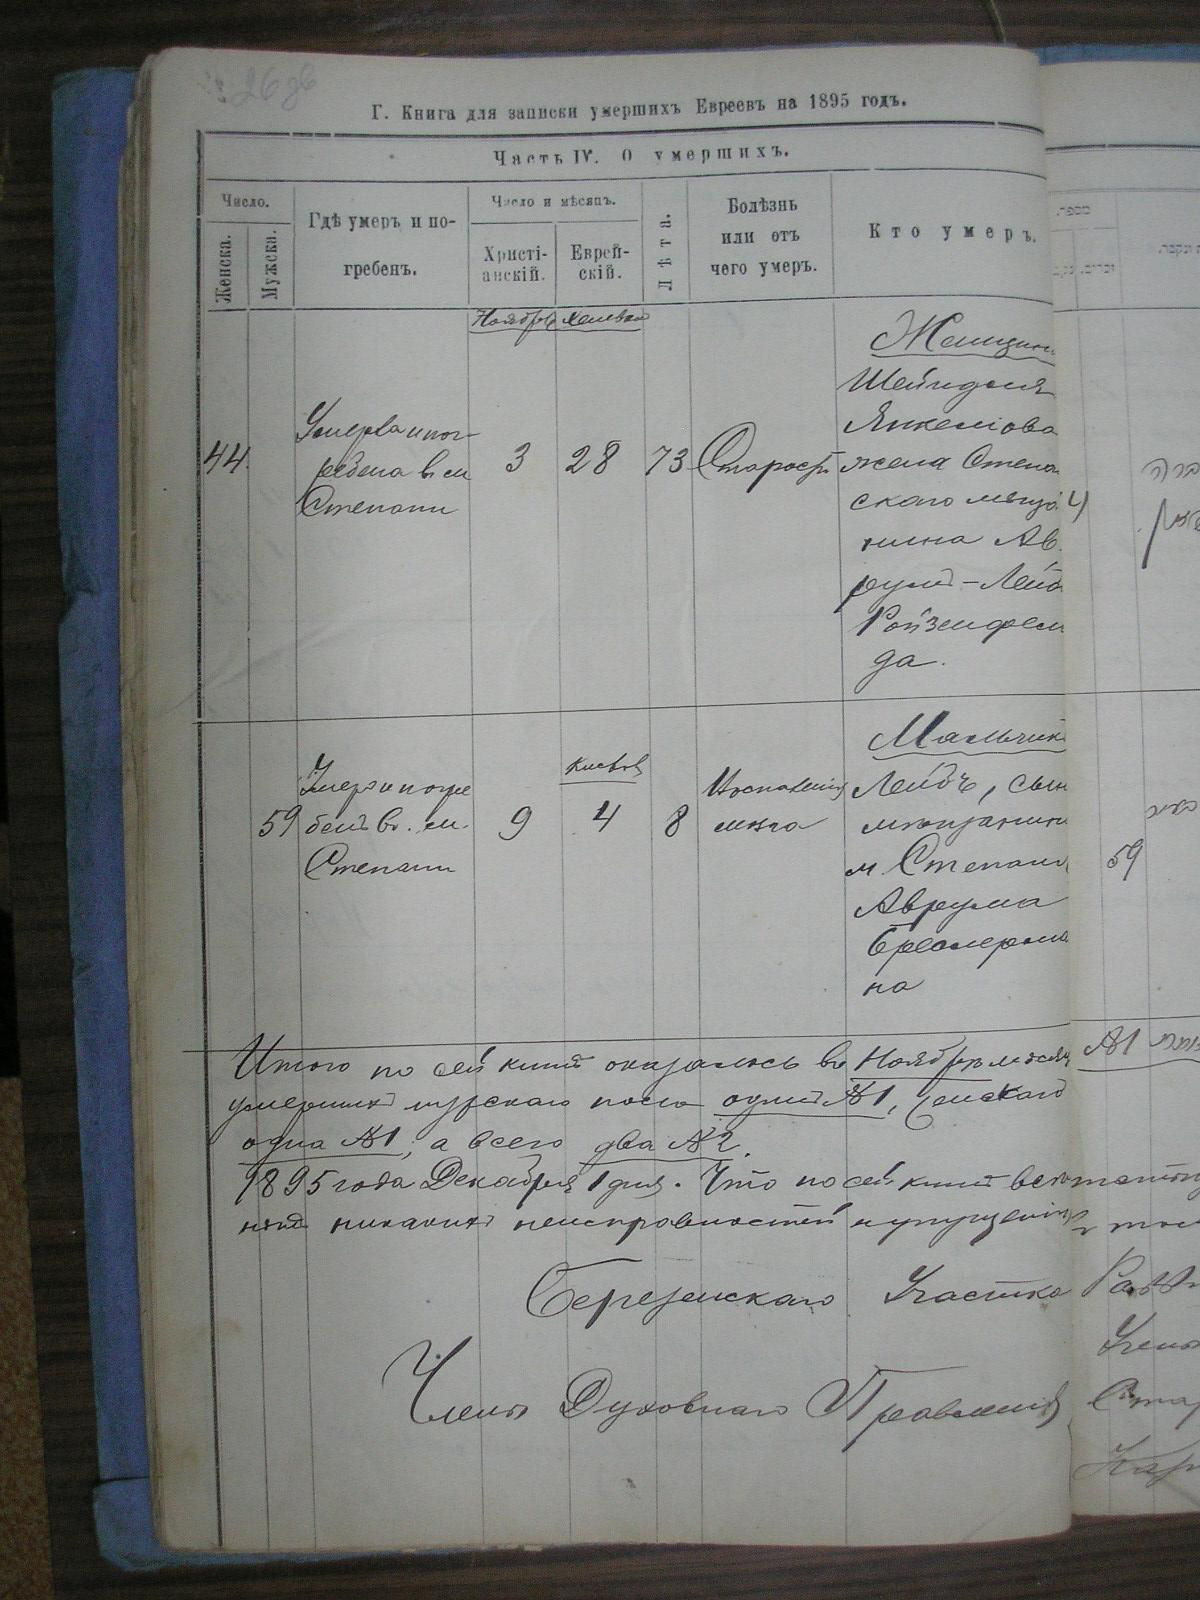 26 об
Г. Книга для записки умершихъ Евреевъ на 1895 годъ.
Часть IV. О умершихъ.
Число.
Женска.
Мужска.
Гдѣ умеръ и по-
гребенъ.
Число и мѣсяцъ.
Христі-
анскій.
Еврей-
скій.
Лѣта.
Болѣзнь
или отъ
чего умеръ.
Кто умеръ.
Ноябрь
44
Умерла и пог-
ребена в м
Степани
3
28
73
Старость
Женщин
Шейндля
Янкелiова
жена Степа
скаго меща
нина Ав
румъ-Лейб
Ройзенфел
да.
Кислев
59
Умеръ и погре
бенъ в. м.
Степани
9
4
8
Воспаленія
мозга
Мальчик
Лейбъ, сын
мещанин
м. Степани
Аврума
Бреслерма
на
59
Итого по сей книгѣ оказалось въ Ноябрѣ месяц
умершихъ мужскаго пола одинъ №1, Женскаго
одна №1, а всего два №2.
1895 года Декабря 1 дня. Что по сей книгѣ
нѣтъ никакихъ неисправностей и упущеній
Березенскаго Участка Равв
Члены Духовнаго Правленія
Учены
Стар
№1